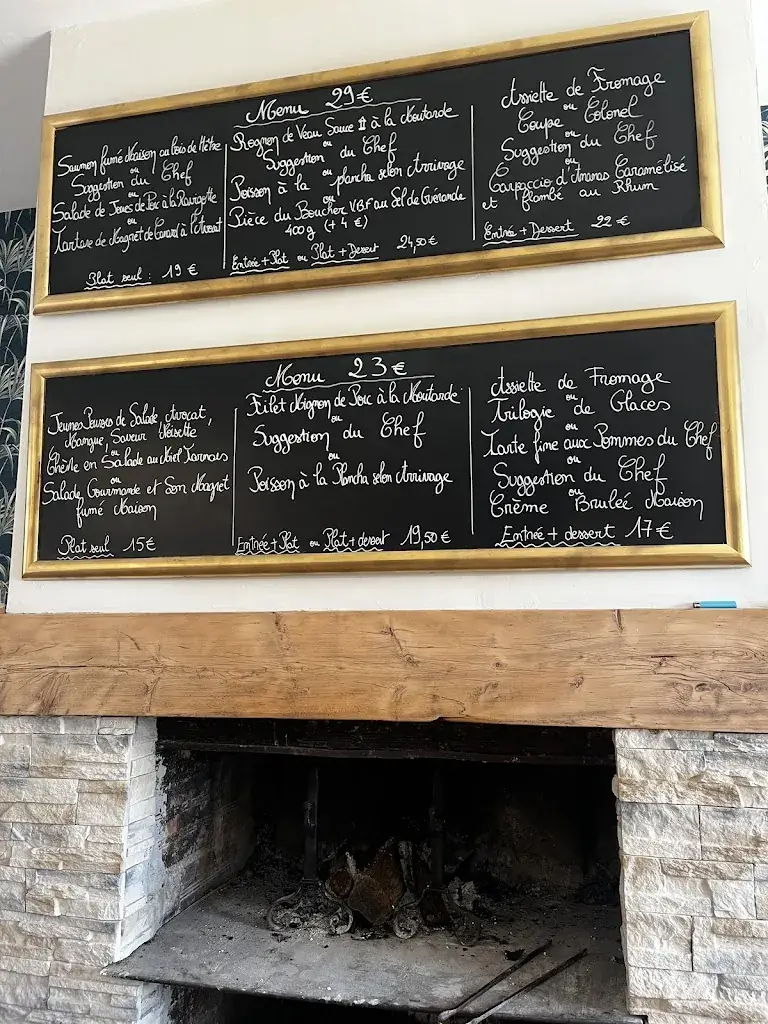 Menu 29€
Saumon fumé Maison au bois de Hêtre
ou
Suggestion du Chef
ou
Salade de Joues de Porc à la Ravigotte
ou
Tartare de Magret de Canard à l'Avocat
Plat seul : 19 €
Rognon de Veau Sauce à la Moutarde
ou
Suggestion du Chef
ou
Poisson à la plancha selon Arrivage
ou
Pièce du Boucher VBF au Sel de Guérande
400g (+ 4 €)
Entrée + Plat ou Plat + Dessert 24,50 €
Assiette de Fromage
ou
Coupe Colonel
ou
Suggestion du Chef
ou
Carpaccio d'Ananas Caramélisé
et flambé au Rhum
Entrée + Dessert 22 €
Menu 23€
Jeunes Pousses de Salade Avocat,
Mangue, Saveur Noisette
ou
Chèvre en Salade au Miel Tarnais
ou
Salade Gourmande et Son Magret
fumé Maison
Plat seul 15€
Filet Mignon de Porc à la Moutarde
ou
Suggestion du Chef
ou
Poisson à la Plancha selon Arrivage
Entrée + Plat ou Plat + dessert 19,50 €
Assiette de Fromage
ou
Trilogie de Glaces
ou
Tarte fine aux Pommes du Chef
ou
Suggestion du Chef
ou
Crème Bruleé Maison
Entrée + dessert 17€